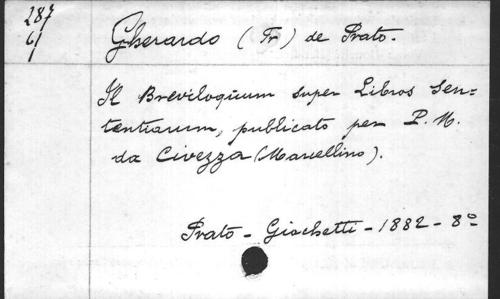 287
61
Gherardo (Fr) de Prato.
Il Breviloquium super Libros Sen=
tentiarum, publicato per P. M.
da Civezza (Marcellino).
Prato - Giachetti - 1882 - 8º